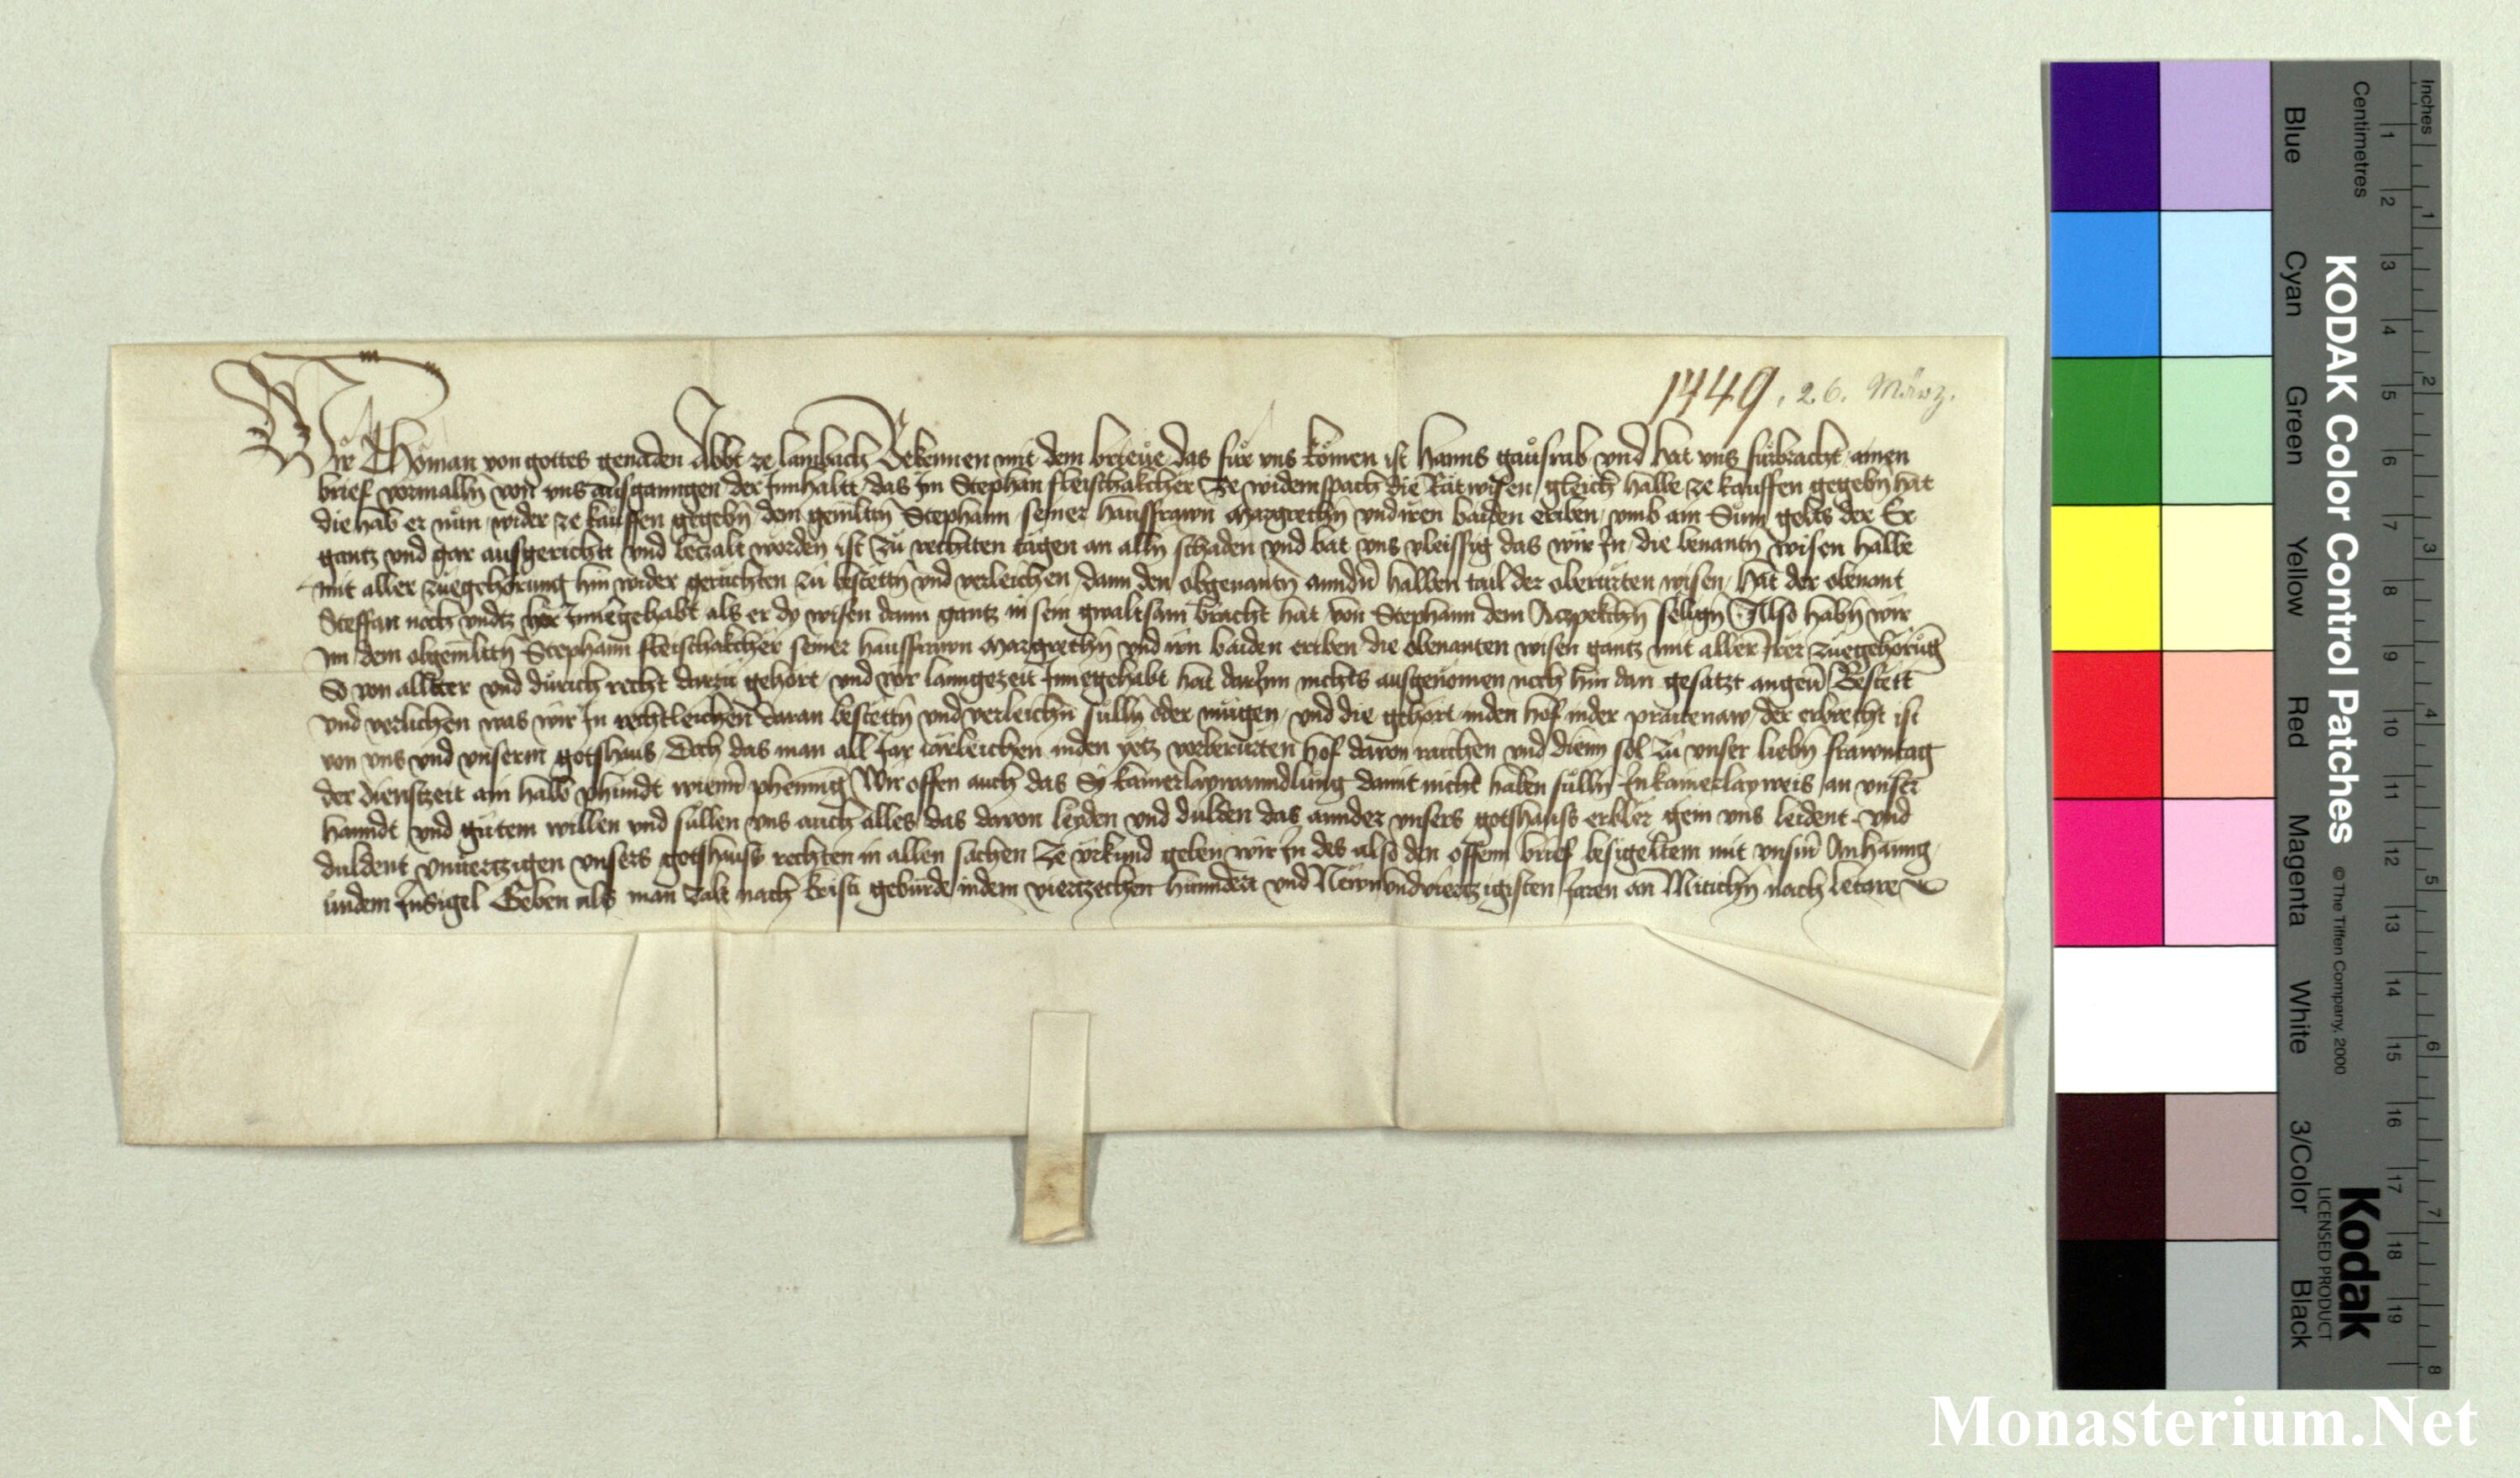 1449, 26. März.
Wir Thoman von gottes genaden Abbt ze lambach Bekennen mit dem brieue das für uns komen ist Hanns gausrab und hat uns fürbracht ainen
brief vormalln von uns ausganngen der Innhaltt das im Stephan fleischakcher Ze widemspach die Rätwisen gleich halbe ze kauffen gegebn hat
die hab er nun wider ze kauffen gegebn dem gemltn Stephann seiner hausfrawn Margrethn und iren baiden eriben umb ain Sum gelts der Er
gantz und gar ausgerichtt und betzalt worden ist zu rechten tagen an alln schaden und bat uns vleissig das wir In die benantn wisen halbe
mit aller zuegehörung hin wider geruchten zu bestettn und verleichen dann den obgenantn anndn halben tail der oberurten wisen hat der obenant
Steffan noch untz her Innegehabt als er dy wisen dann gantz in sein gwaltsam bracht hat von Stephann dem Aczpekchn seligen Also habn wir
im dem obgemltn Stephann fleischakcher seiner hausfrawn Margrethn und irn baiden eriben die obenanten wisen gantz mit aller irer zuegehörung
So von allter und durich recht darzu gehört und vor lanngezeit Innegehabt hat darinn nichts ausgenomen noch hin dan gesatzt angeu Bestett
und verlichen was wir In rechtleichen daran bestettn und verleichn sulln oder mugen und die gehört inden hof inder praitenaw der erbrecht ist
von uns und unserm gotshaus Doch das man all Jar iärleichen inden yetz vorberurten hof davon raichen und dienn sol zu unser liebn frawntag
der dienstzeit ain halb phundt wienn phennig Wir offen auch das Sy kainerlaywanndlung damit nicht haben sulln In kainerlay weis an unser
hanndt und gutem willen und sullen uns auch alles das davon leyden und dulden das annder unsers gotshauss erbler gein uns leident und
duldent unuertzigen unsers gotshauss rechten in allen sachen Ze urkund geben wir In des also den offenn brief besigeltem mit unsm Anhanng
undem Insigel Geben als man zalt nach kristi geburde indem viertzechen hunndert und Newnundviertzigisten Jaren an Mitichn nach letare
KODAK Color Control Patches
© The Tiffen Company, 2000
Kodak
LICENSED PRODUCT
Inches 1 2 3 4 5 6 7 8
Centimetres 1 2 3 4 5 6 7 8 9 10 11 12 13 14 15 16 17 18 19
Blue Cyan Green Yellow Red Magenta White 3/Color Black
Monasterium.Net